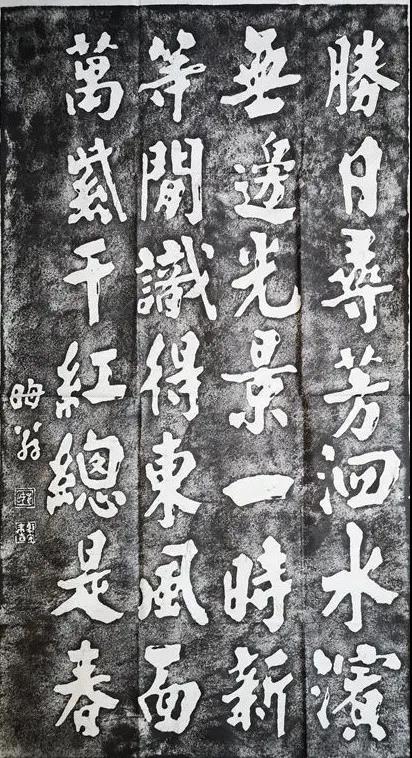 勝日尋芳泗水濱
無邊光景一時新
等閒識得東風面
萬紫千紅總是春
晦翁